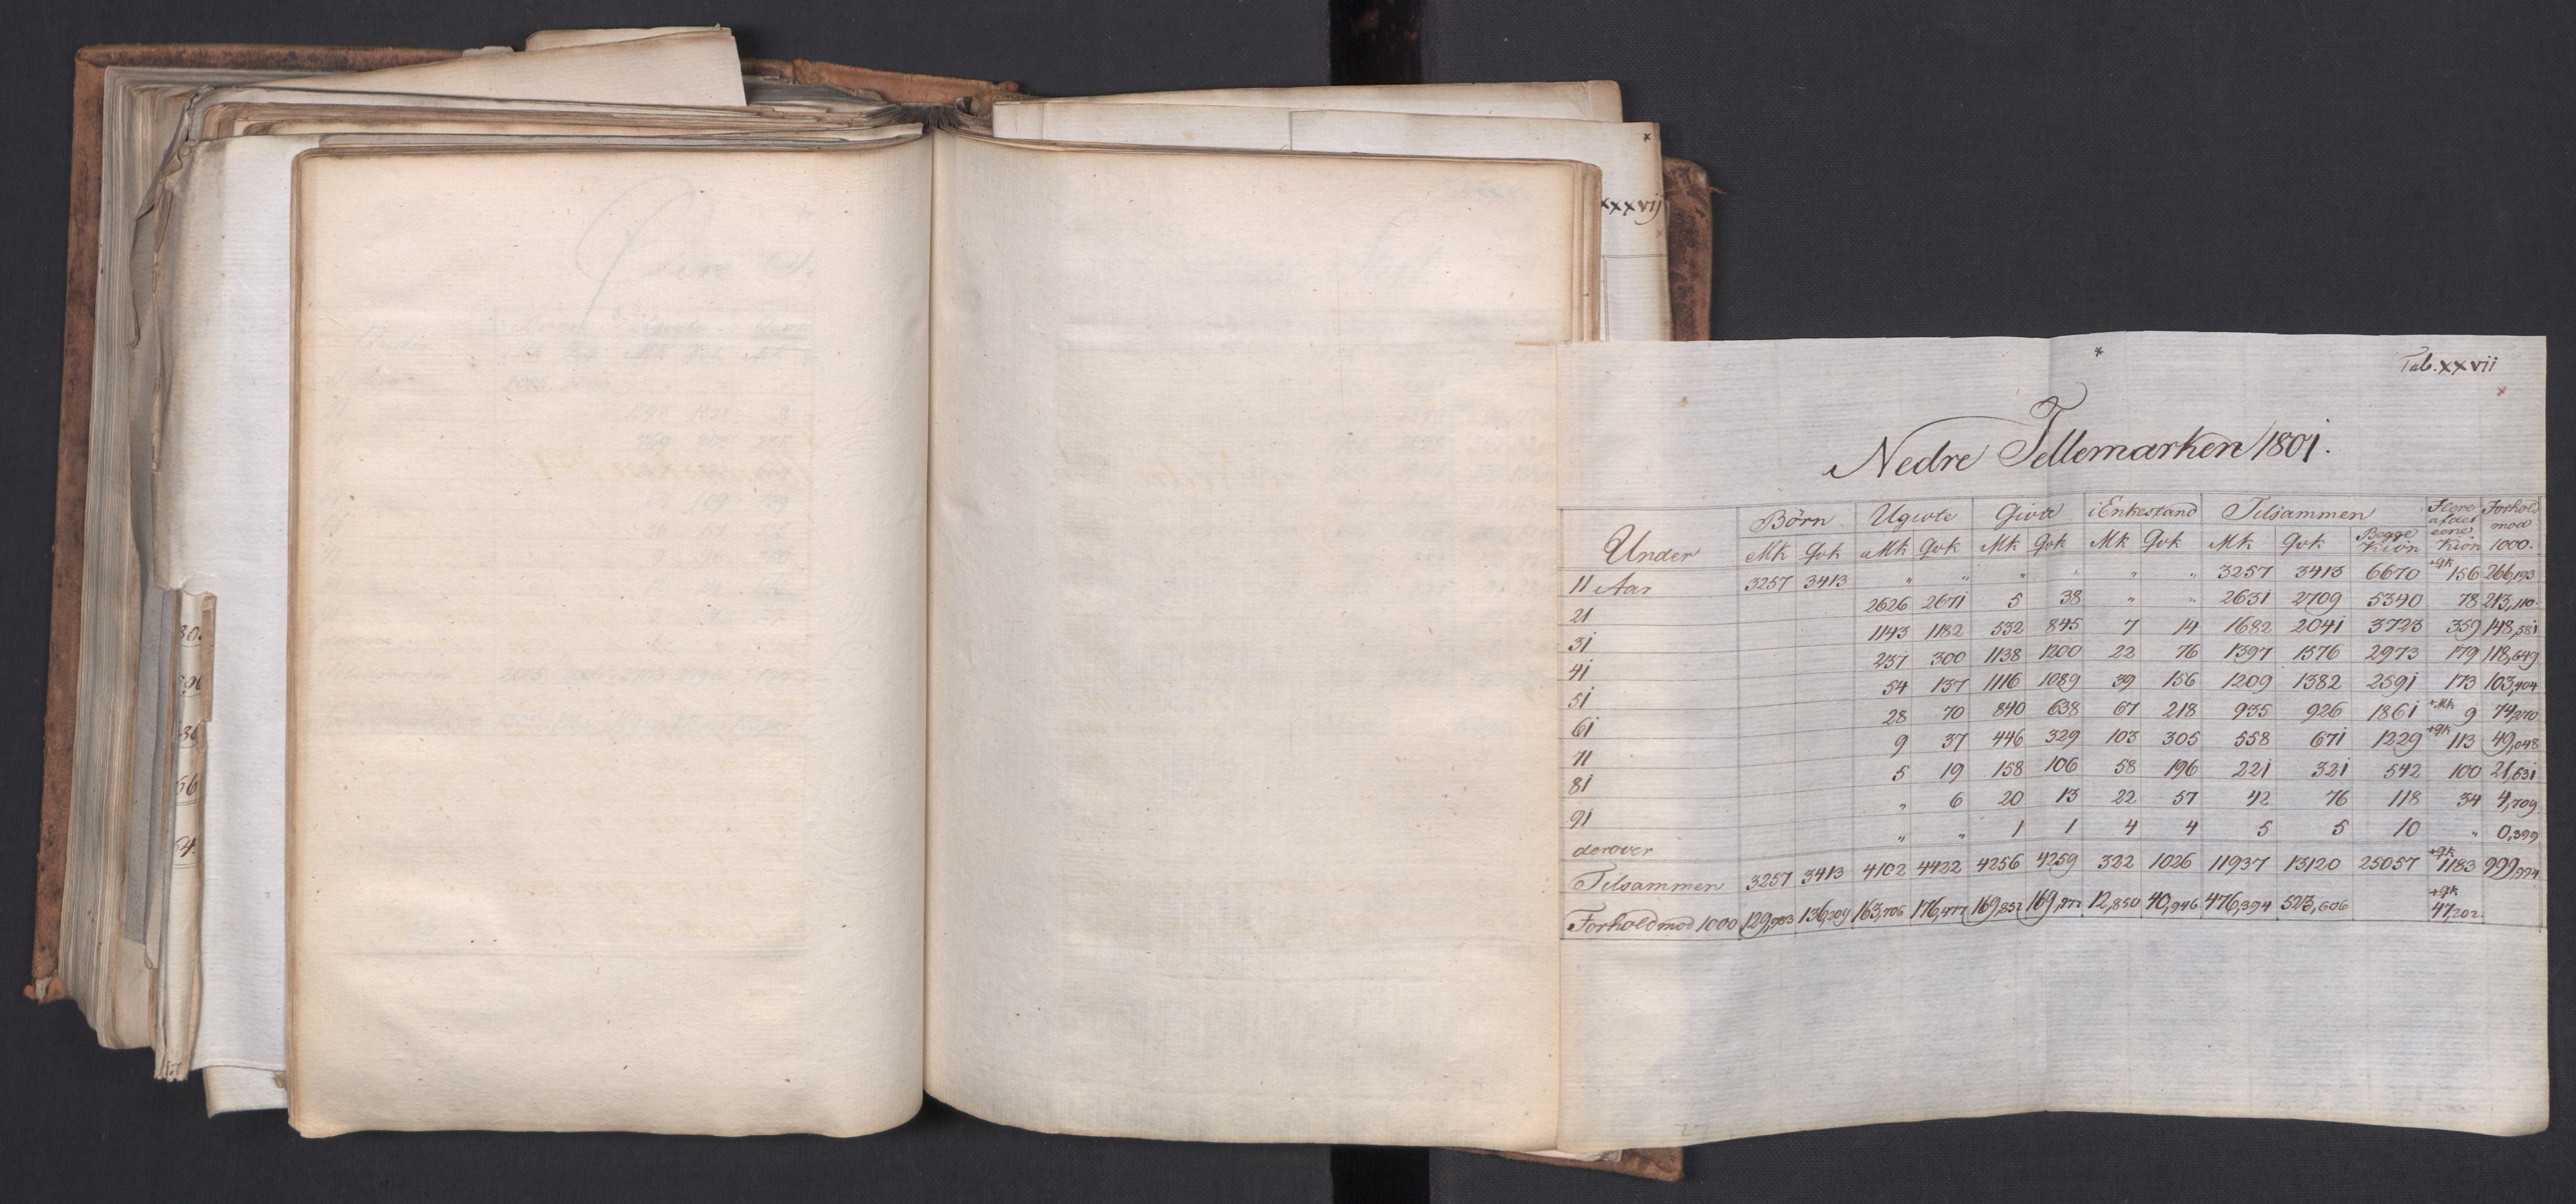 xxxvij
Tab. xxvii
Nedre Tellemarken 1801.
Under Børn Ugivte Givte i Enkestand Tilsammen Flere af det eene Kiön Forhold mod 1000.
Mk Qvk Mk Qvk Mk Qvk Mk Qvk Mk Qvk Begge Kiön
11 Aar 3257 3413 " " " " " " 3257 3413 6670 +Qk 156 266,193
21 2626 2671 5 38 " " 2631 2709 5340 78 213,110
31 1143 1182 532 845 7 14 1682 2041 3723 359 148,581
41 237 300 1138 1200 22 76 1397 1576 2973 179 118,649
51 54 137 1116 1089 39 156 1209 1382 2591 173 103,404
61 28 70 840 638 67 218 935 926 1861 +Mk 9 74,270
71 9 37 446 329 103 305 558 671 1229 +Qk 113 49,048
81 5 19 158 106 58 196 221 321 542 100 21,631
91 " 6 20 13 22 57 42 76 118 34 4,709
derover " " 1 1 4 4 5 5 10 " 0,399
Tilsammen 3257 3413 4102 4422 4256 4259 322 1026 11937 13120 25057 +Qk 1183 999,994
Forhold mod 1000 129,983 136,209 163,706 176,477 169,852 169,972 12,850 40,946 476,394 523,606 +Qk 47,202